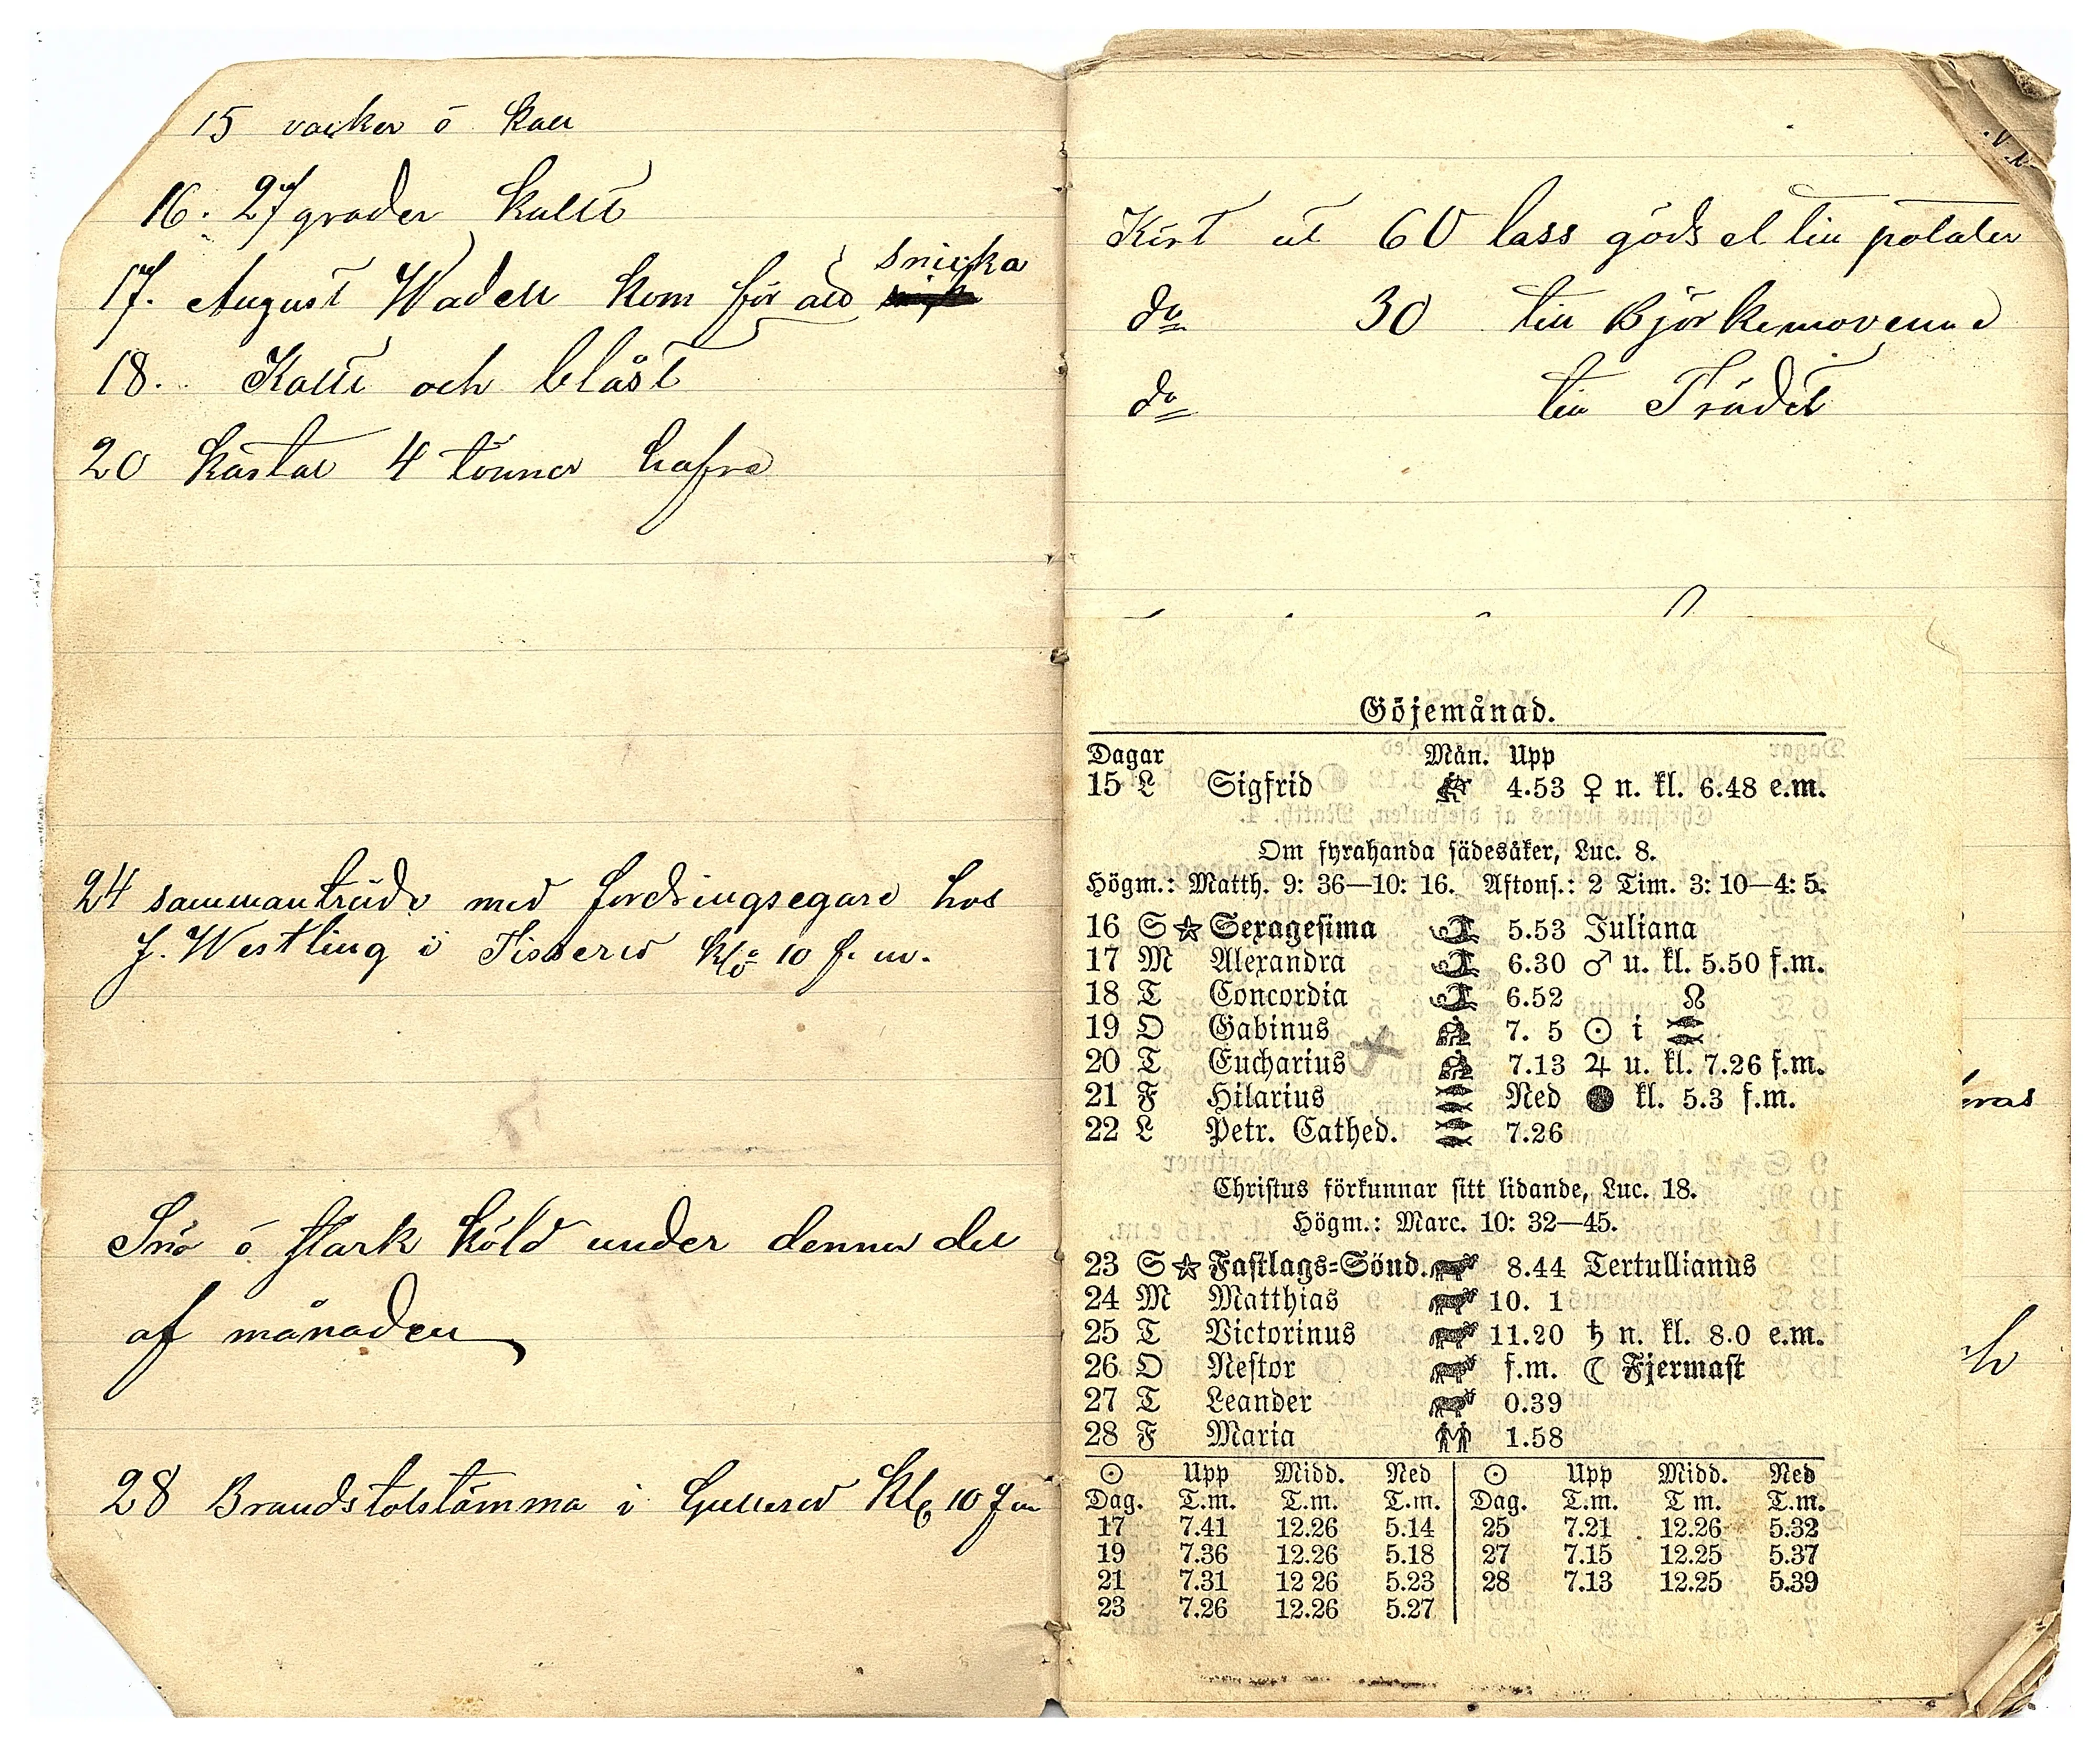 15 vacker ö kall
16. 27 grader kallt
snicka
17. August Wadell kom för att
18. Kallt och blåst
20 kastat 4 tönner hafra
24 sammanträde med fordringsegare hos
J. Westling i Tisserud klo 10 f. m.
Snö ö stark köld under denna del
af månaden
28 Brandstolstämma i Gullerud Kl 10 f m
Kört ut 60 lass gödsel till potater
do 30 till Björkemovena
do till Trädet
Göjemånad.
Dagar Mån. Upp
15 L Sigfrid 4.53 ♀ n. kl. 6.48 e.m.
Om fyrahanda sädesåker, Luc. 8.
Högm.: Matth. 9: 36—10: 16. Aftons.: 2 Tim. 3: 10—4: 5.
16 S ☆ Sexagesima 5.53 Juliana
17 M Alexandra 6.30 ♂ u. kl. 5.50 f.m.
18 T Concordia 6.52 ☊
19 O Gabinus 7. 5 ☉ i
20 T Eucharius 7.13 ♃ u. kl. 7.26 f.m.
21 F Hilarius Ned ● kl. 5.3 f.m.
22 L Petr. Cathed. 7.26
Christus förkunnar sitt lidande, Luc. 18.
Högm.: Marc. 10: 32—45.
23 S ☆ Fastlags-Sönd. 8.44 Tertullianus
24 M Matthias 10. 1
25 T Victorinus 11.20 ♄ n. kl. 8.0 e.m.
26 O Nestor f.m. ☾ Fjermast
27 T Leander 0.39
28 F Maria 1.58
☉ Upp Midd. Ned ☉ Upp Midd. Ned
Dag. T.m. T.m. T.m. Dag. T.m. T m. T.m.
17 7.41 12.26 5.14 25 7.21 12.26 5.32
19 7.36 12.26 5.18 27 7.15 12.25 5.37
21 7.31 12 26 5.23 28 7.13 12.25 5.39
23 7.26 12.26 5.27